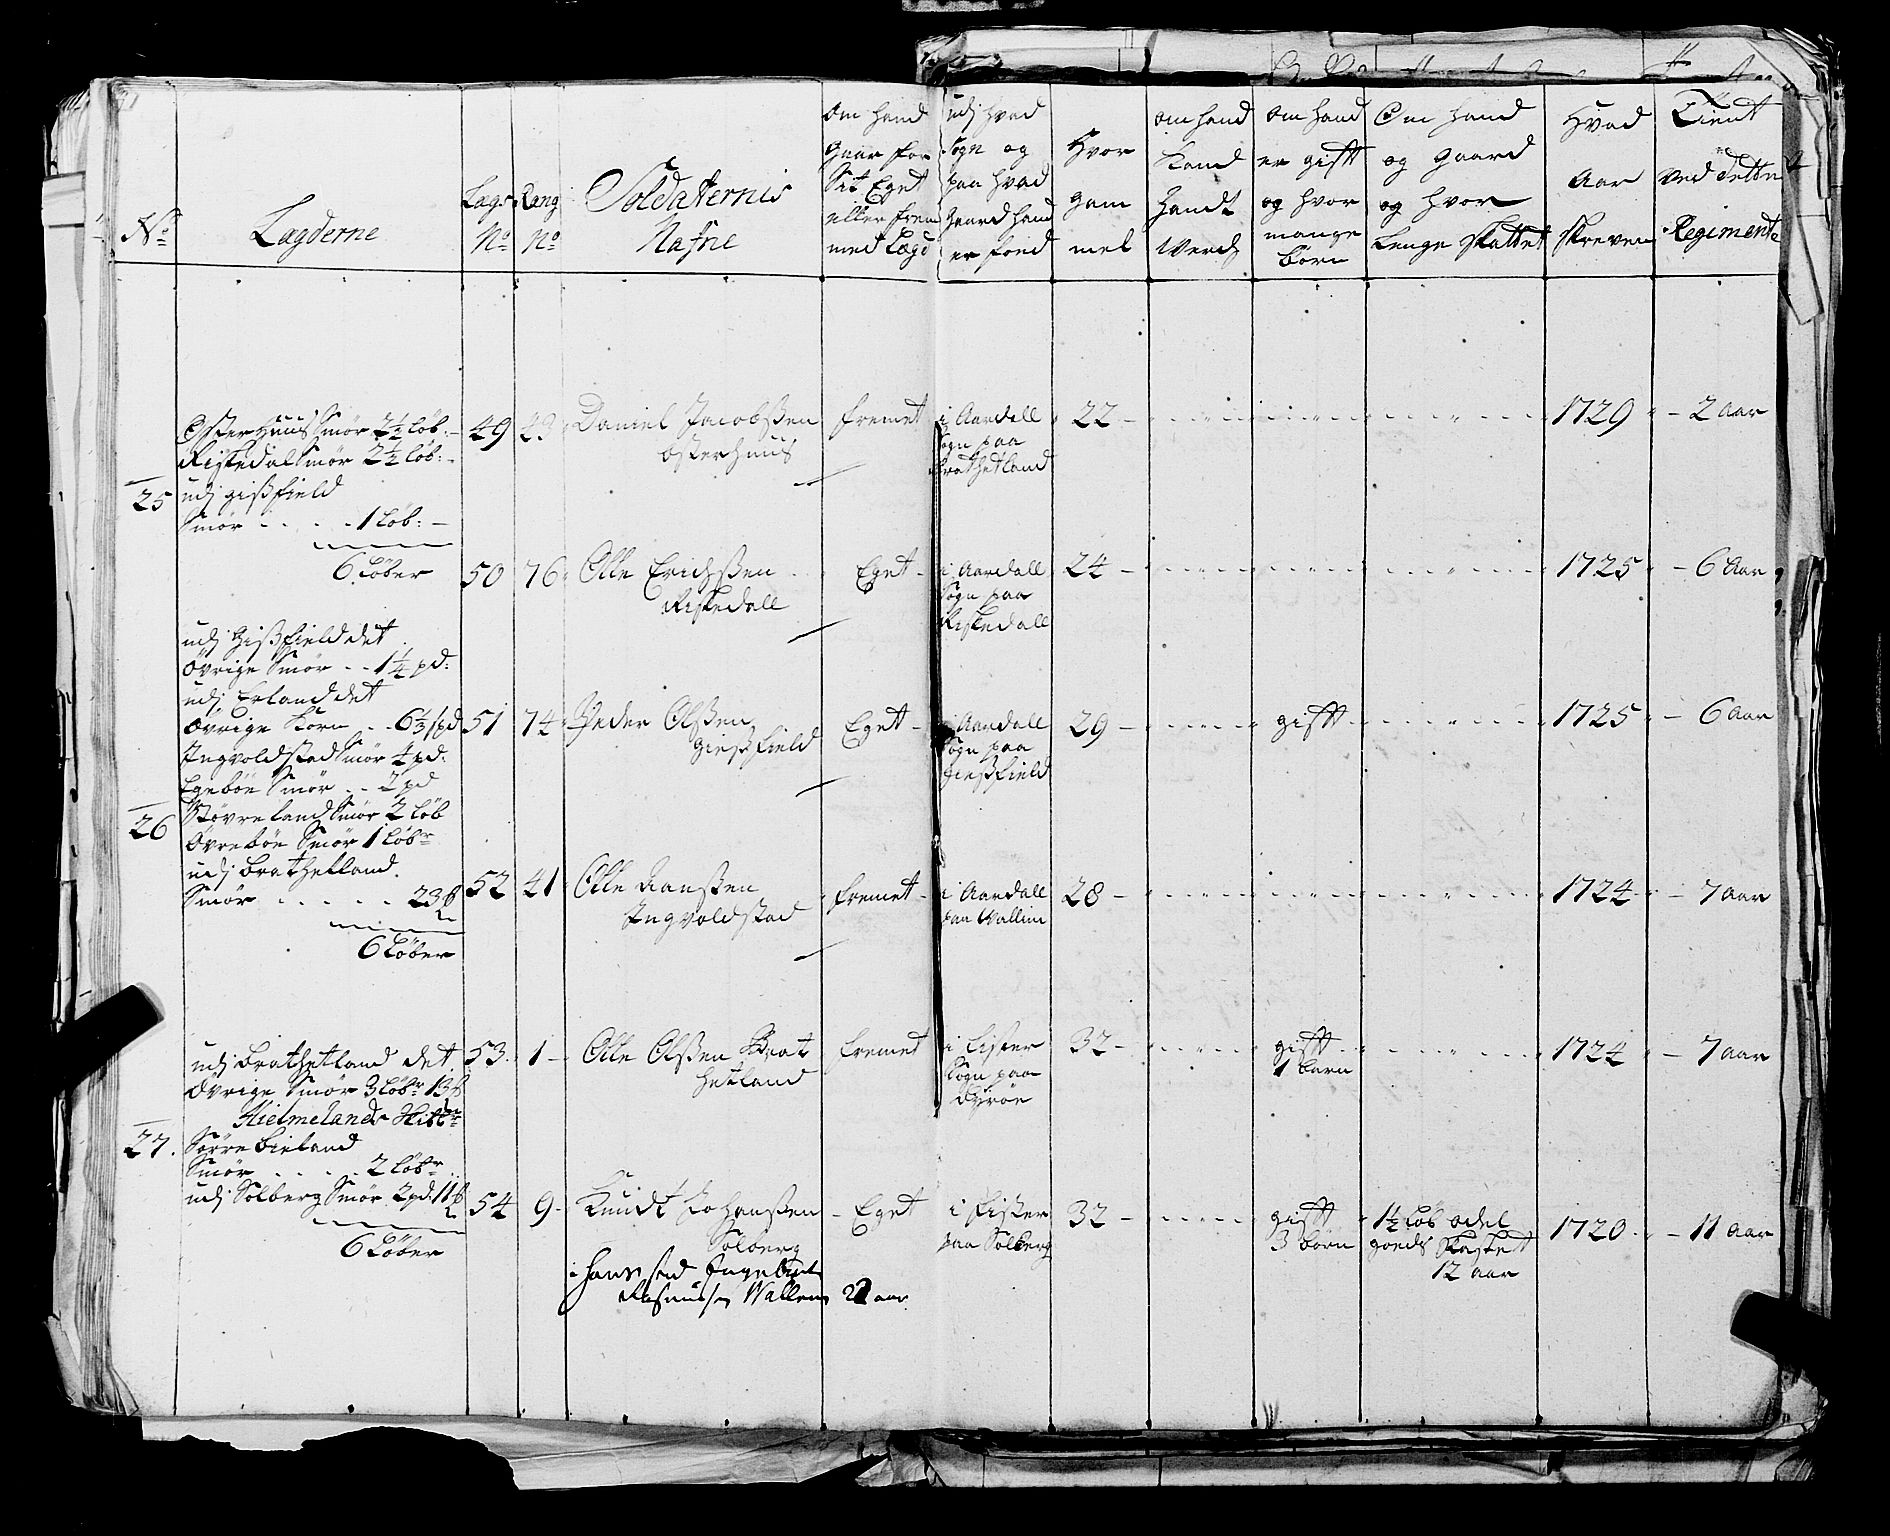 No
Lægderne
Lægs No
Rang No
Soldaternis Nafne
om hand
gaar for
Sit Eget
eller frem
med Lægd
udj hvad
Sogn og
paa hvad
gaard hand
er föed
Hvor
gam
mel
om hand
kand
handt
Verch
om hand
er gifft
og hvor
mange
börn
Om hand
og gaard
og hvor
lenge Skattet
Hvad
Aar
Skreven
Tient
ved dette
Regimente
25
Osterhuus Smör 2½ löb:
Riskedal Smör 2½ löb:
udj gißfield
Smör - - - - 1 löb:
6 Löber
49 43 Daniel Jacobßen
Osterhuus
fremet
i Aardall
Sogn paa
Brathetland
22 1729 2 Aar
50 76 Olle Erichßen
Riskedall
Eget
i Aardall
Sogn paa
Riskedall
24 1725 6 Aar
26
udj Gißfield det
övrige Smör - - 1¼ pd:
udj Erland det
övrige Korn - - 6½ pd
Ingvoldstad Smör 4 pd:
Egeböe Smör - - 2 pd
Störreland Smör 2 löb
Övreböe Smör 1 löbr
udj Brathetland.
Smör - - - - - 23
6 Löber
51 74 Peder Olßen
Gießfield
Eget
i Aardall
Sogn paa
Gießfield
29 gifft 1725 6 Aar
52 41 Olle Hanßen
Ingvoldstad
fremet
i Aardall
paa Vallim
28 1724 7 Aar
27.
udj Brathetland det
övrige Smör 3 löbr 13
Hielmelands
Sörre Bieland
Smör - - - - 2 löbr
udj Solberg Smör 2 pd: 11
6 Löber
53. 1 Olle Olßen Brat
hetland
fremet
i Fister
Sogn paa
32 gifft
1 barn
1724 7 Aar
54 9 Knudt Johanßen
Solberg
Eget
i Fister
paa Solberg
32 gifft
3 börn
1½ löb odel
goeds Skattet
12 aar
1720. 11 Aar
i hans sted Ingebret
Rasmussen Vallem 22 aar